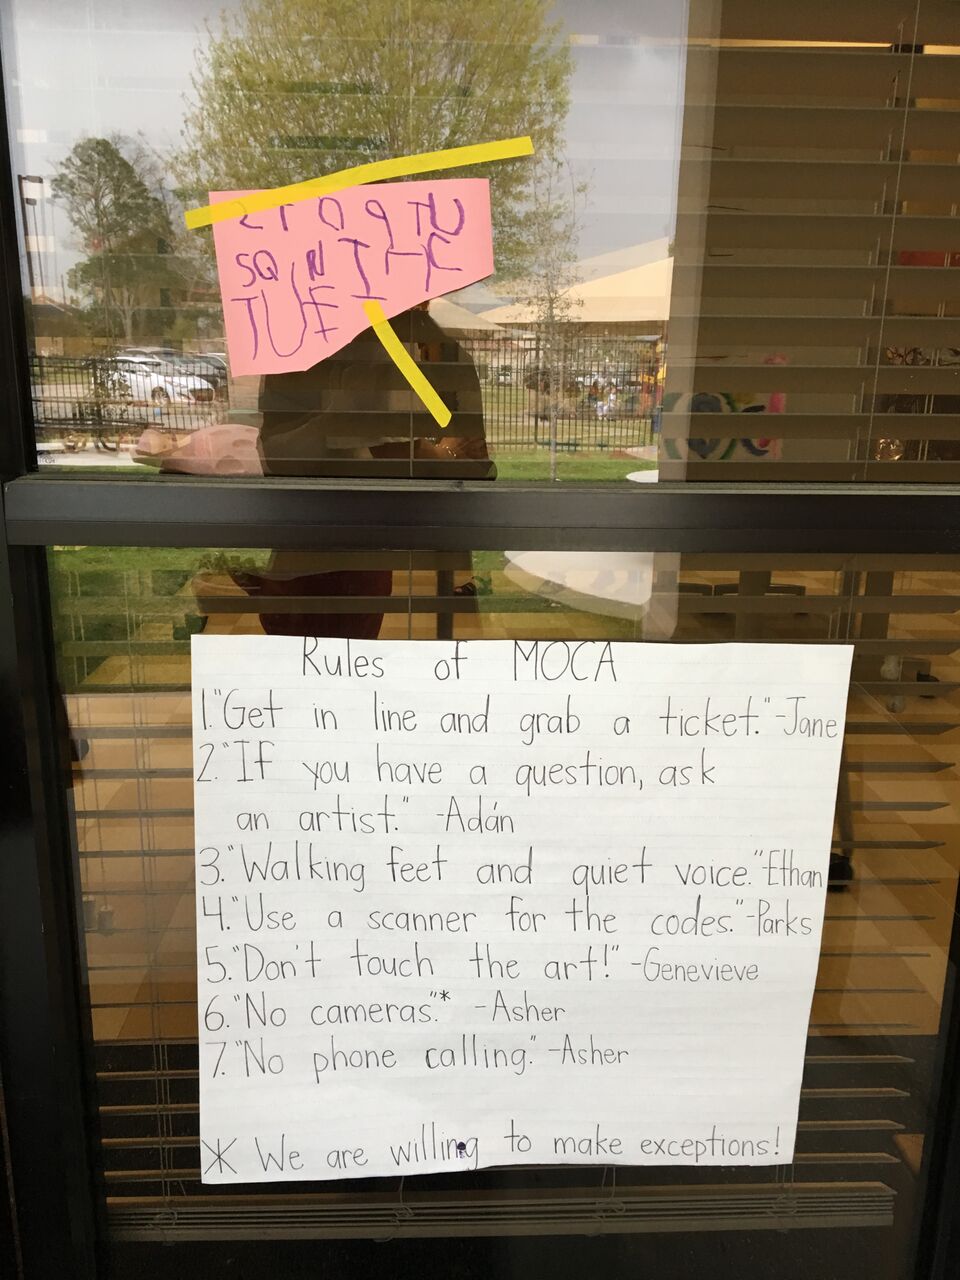 SQ N I HC
TUE
Rules of MOCA
1."Get in line and grab a ticket."-Jane
2."If you have a question, ask
an artist." -Adán
3."Walking feet and quiet voice."Ethan
4."Use a scanner for the codes."-Parks
5."Don't touch the art!" -Genevieve
6."No cameras."* -Asher
7."No phone calling." -Asher
* We are willing to make exceptions!